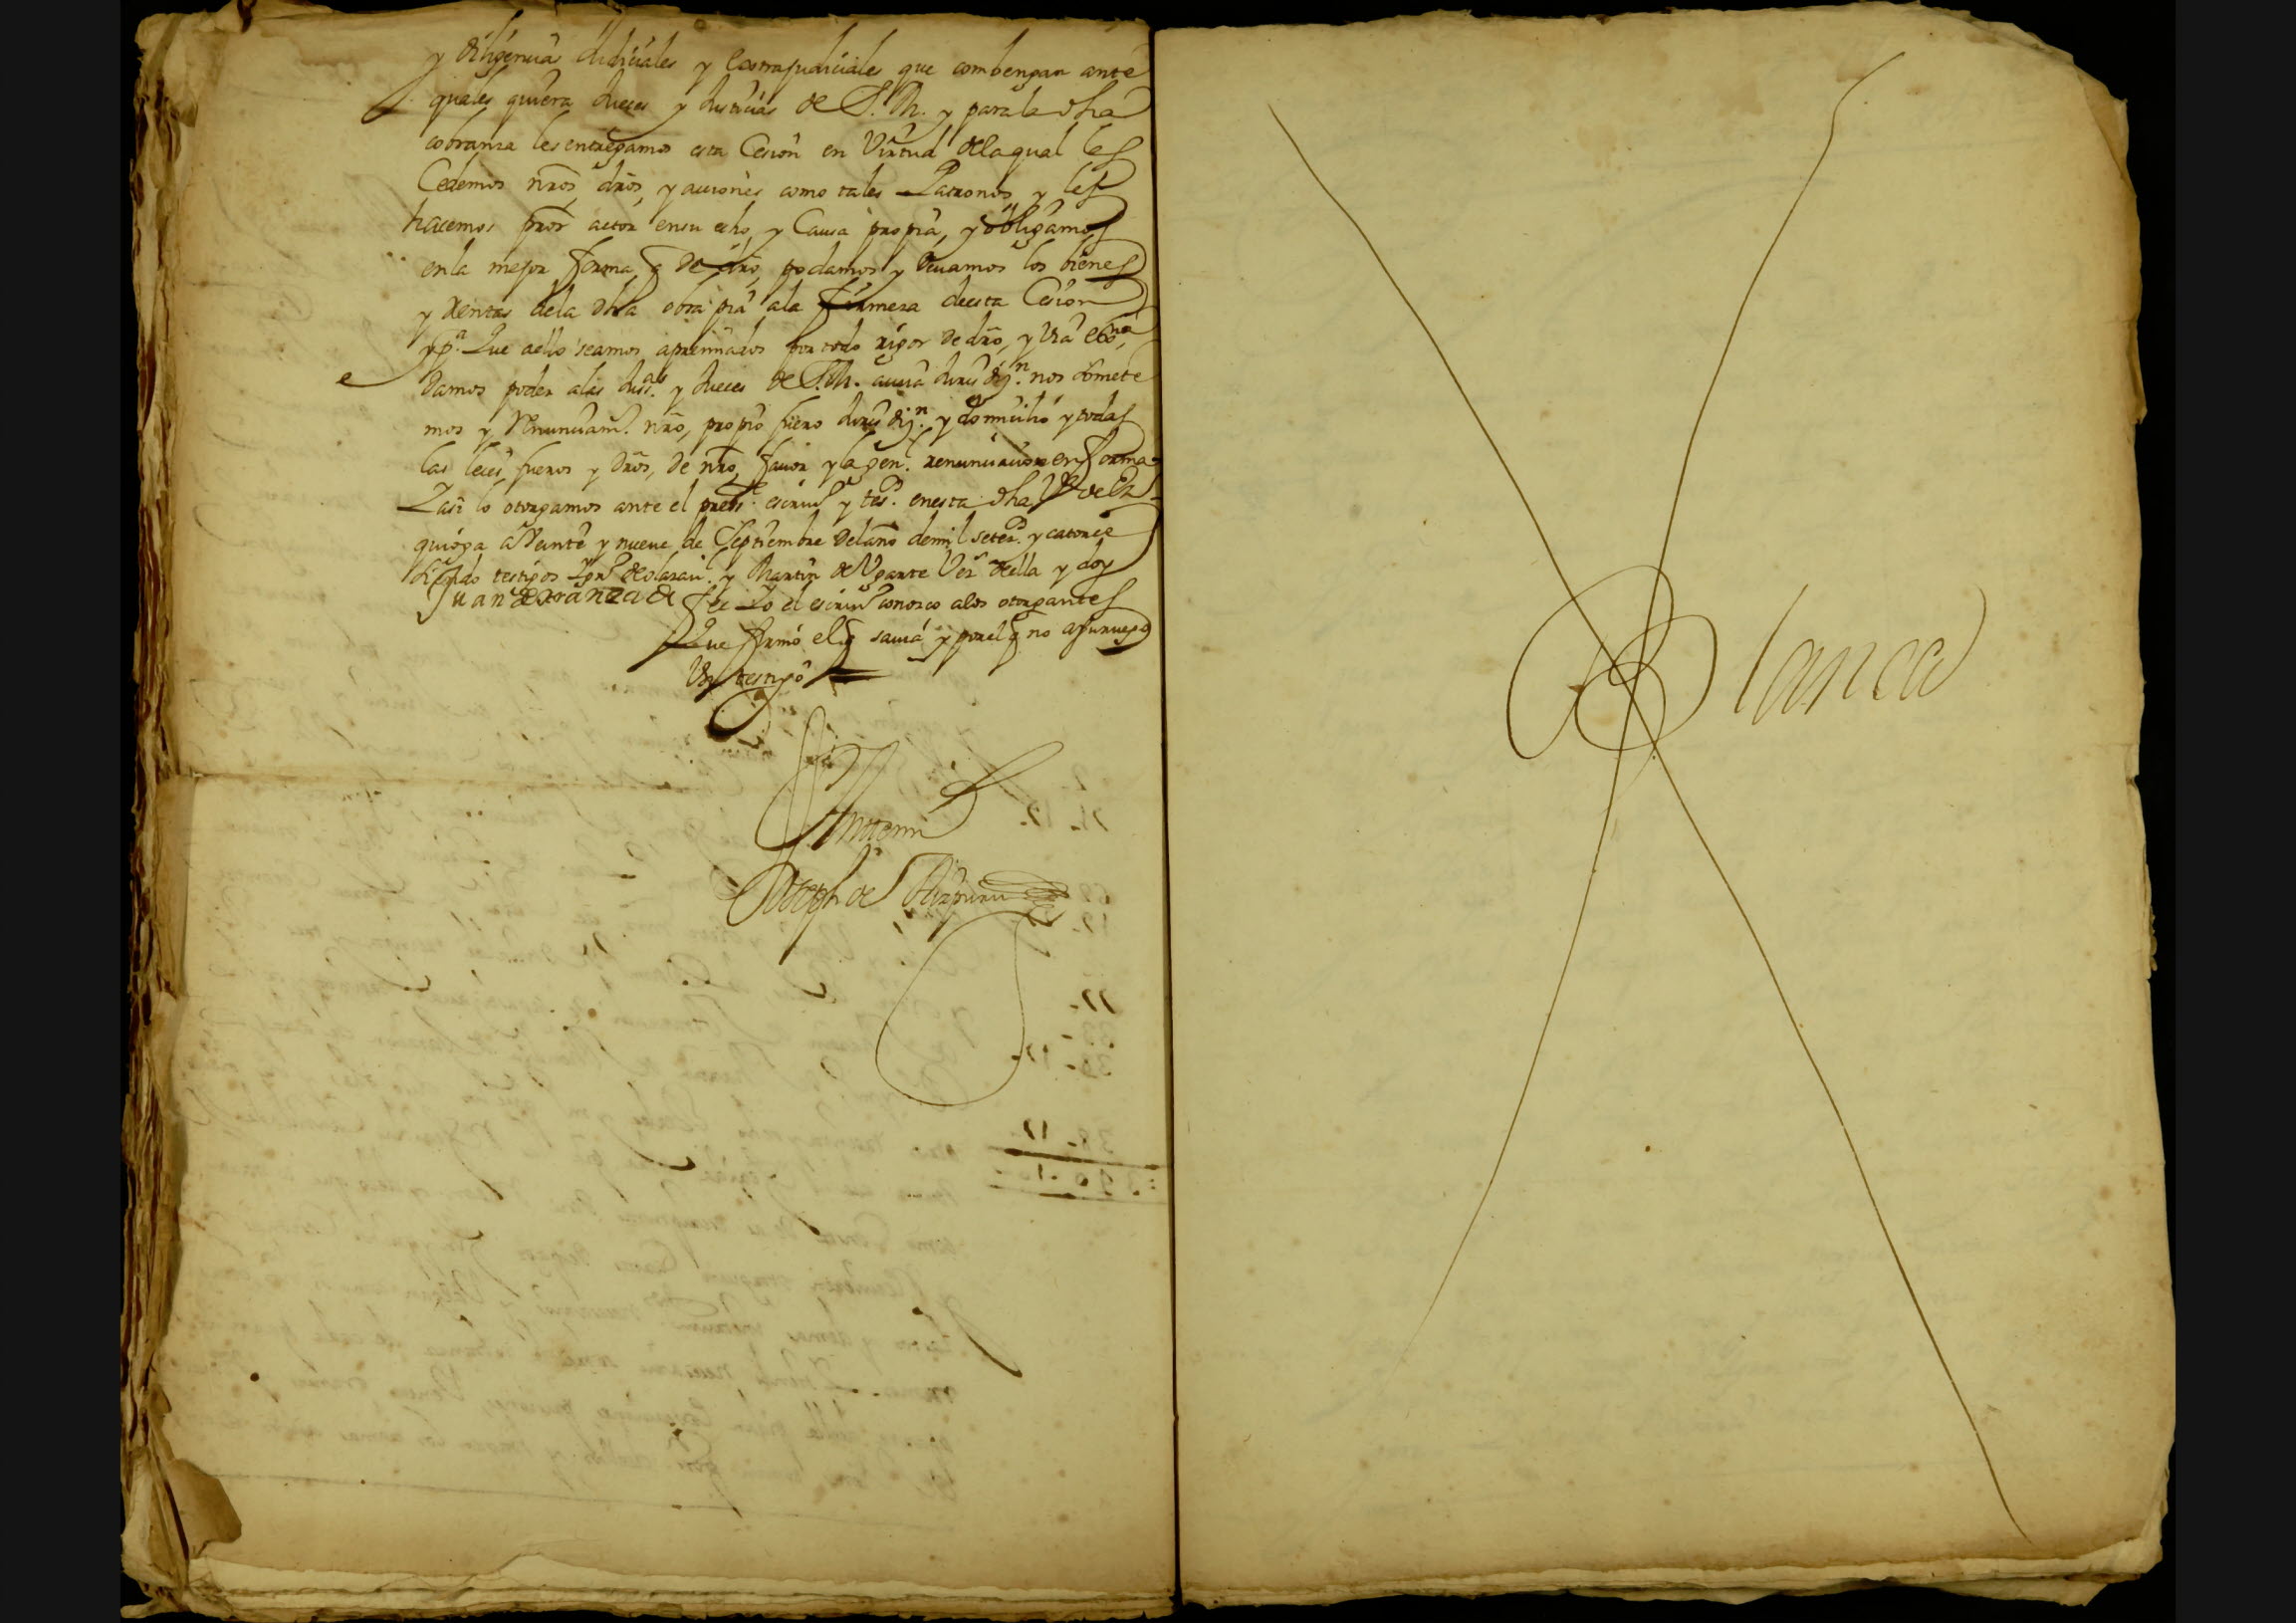 y diligencias Judiciales y Extrajudiciales que combengan ante
quales quiera Jueces y Justicias de S. M. y para la dha
cobranza les entregamos esta Cesion en Virtud dela qual les
Cedemos nros, dros, y acciones como tales Patronos, y les
hacemos pror actor en su echo, y Causa propia, y obligamos
en la mejor forma q de dro, podamos y devamos los bienes
y Rentas dela dha obra pia ala firmeza de esta Cesion
y pa. Que aello seamos apremiados por todo rigor de dro, y via
Damos poder alas Jusas. y Jueces de S.M. a cuia Jurisdizn. nos somete
mos y Renunciams. nro, propio fuero Jurisdizn. y domicilio y todas
las leies, fueros y dros, de nro, favor y la genl. renunciacion en forma
Y asi lo otorgamos ante el preste. escrivo y tesos. en esta dha Va de
quioga a Veinte y nueve de Septiembre del año de mil seteos. y catorce
siendo testigos y Martin de Ugarte Vezos della y doy
Juan de aranzadi fee Yo el escrivo conozco alos otorgantes
Que firmó el q savia y por el q no a su ruego
Un testigo
Antemi
Joseph de Aizpuru
Blanca